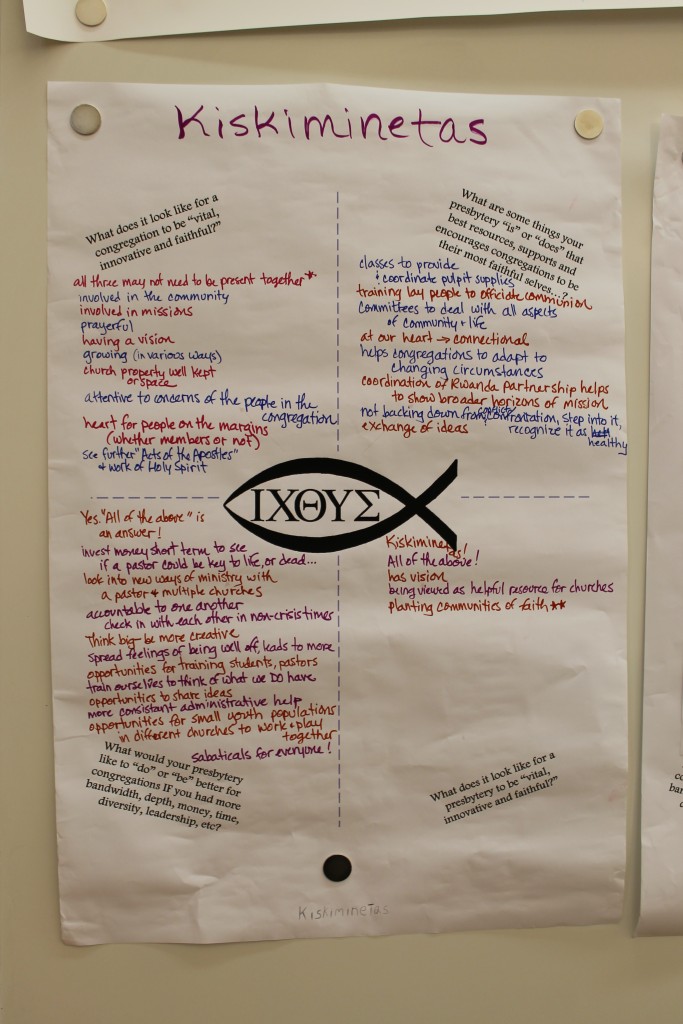 Kiskiminetas
What does it look like for a
congregation to be "vital,
innovative and faithful?"
all three may not need to be present together*
involved in the community
involved in missions
prayerful
having a vision
growing (in various ways)
church property well kept
or space
attentive to concerns of the people in the
congregation
heart for people on the margins
(whether members or not)
see further "Acts of the Apostles"
& work of Holy Spirit
What are some things your
presbytery "is" or "does" that
best resources, supports and
encourages congregations to be
their most faithful selves...?
classes to provide
& coordinate pulpit supplies
training lay people to officiate communion
committees to deal with all aspects
of community + life
at our heart → connectional
helps congregations to adapt to
changing circumstances
coordination of Rwanda Partnership helps
to show broader horizons of mission
conflict/
not backing down from confrontation, step into it,
recognize it as
healthy
exchange of ideas
ΙΧΘΥΣ
Yes. "All of the above" is
an answer!
invest money short term to see
if a pastor could be key to life, or dead...
look into new ways of ministry with
a pastor & multiple churches
accountable to one another
check in with each other in non-crisis times
Think big - be more creative
spread feelings of being well off, leads to more
opportunities for training students, pastors
train ourselves to think of what we DO have
opportunities to share ideas
more consistant administrative help
opportunities for small youth populations
in different churches to work & play
together
sabaticals for everyone!
What would your presbytery
like to "do" or "be" better for
congregations IF you had more
bandwidth, depth, money, time,
diversity, leadership, etc?
Kiskiminetas!
All of the above!
has vision
being viewed as helpful resource for churches
planting communities of faith**
What does it look like for a
presbytery to be "vital,
innovative and faithful?"
Kiskiminetas